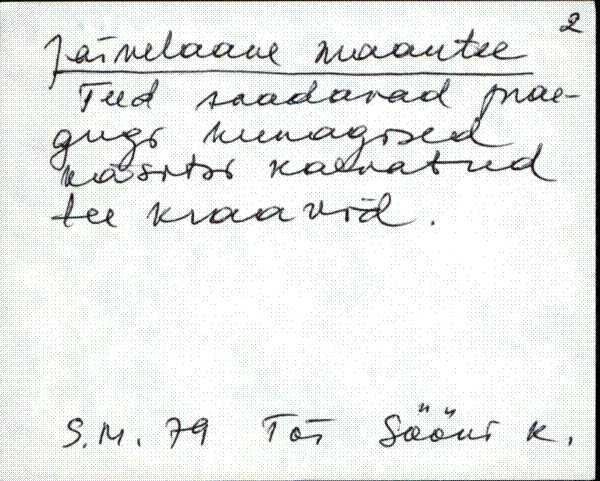 2
Järvelaane maantee
Teed saadavad prae-
gugi kunagised
käsitsi kaevatud
tee kraavid.
S.M. 79 Tõi Sööni k.